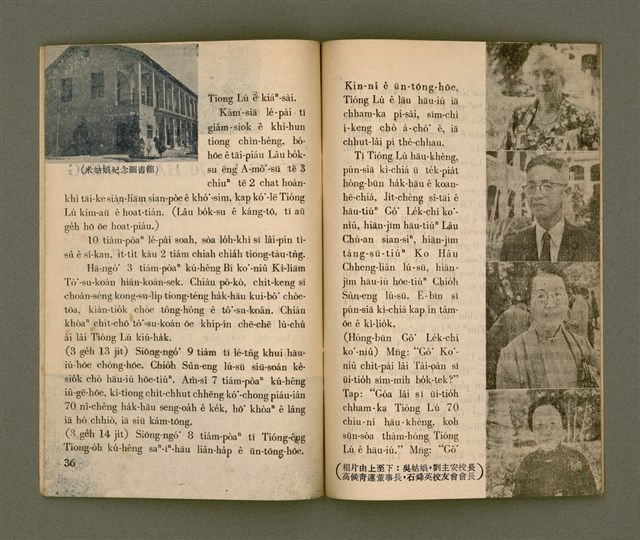 (米姑娘紀念圖書館)
Tiong Lú ê kiáⁿ-sài.
Kám-siā lé-pài tī
giâm-siok ê khì-hun
tiong chìn-hêng, bó-
hōe ê tāi-piáu Lâu bók-
su ēng A-mô͘-sū tē 3
chiuⁿ tē 2 chat hoân-
khì tāi-ke siàn-liām sian-pòe ê khó͘-sim, kap kó͘-lē Tióng
Lú kim-aū ê hoat-tián. (Lâu bók-su ê káng-tō, tī aū
géh hō ōe hoat-piáu.)
10 tiám-pòaⁿ lé-pài soah, sòa lóh-khì sī lâi-pin tī-
sû ê sî-kan, it-tit kàu 2 tiám chiah chiáh tiong-tàu-tǹg.
Hā-ngó͘ 3 tiám-pòaⁿ kú-hêng Bí ko͘-niû Kì-liām
Tô͘-su-koán hiān-koán-sek. Chiàu pò-kò, chit-keng sī
choân-séng kong-su-lip tiong-téng hák-hāu kui-bô͘ chòe-
tōa, kiàn-tiók chòe tông-hông ê tô͘-su-koán. Chiàu
khòaⁿ chit-chō tô͘-su-koán ōe khip-ín chē-chē lú-chú
ài lâi Tióng Lú kiû-hák.
(3 géh 13 jit) Siōng-ngó͘ 9 tiám tī lé-tn̂g khui hāu-
iú-hōe chóng-hōe. Chióh Sún-eng lú-sū siū-soán kè-
siók chò hāu-iú hōe-tiúⁿ. Àm-sî 7 tiám-pòaⁿ kú-hêng
iû-gē-hōe, kī-tiong chit-chhut chhēng kó͘-chong piáu-ián
70 nî-chêng hák-hāu seng-oáh ê kék, hō͘ khòaⁿ ê lâng
iā hó chhiò, iā siū kám-tōng.
(3 géh 14 jit) Siōng-ngó͘ 8 tiám-pòaⁿ tī Tióng-êng
Tiong-óh kú-hêng saⁿ-iⁿ-hāu liân-háp ê ūn-tōng-hōe.
36
Kin-nî ê ūn-tōng-hōe,
Tióng Lú ê lāu hāu-iú iā
chham-ka pí-sài, sīm-chì
í-keng chò á-chó͘ ê, iā
chhut-lâi pí thé-chhau.
Tī Tióng Lú hāu-khèng,
pún-siā kì-chiá ū ték-piát
hóng-būn hák-hāu ê koan-
hē-chiá, Jit-chêng sî-tāi ê
hāu-tiúⁿ Gô͘ Lék-chì ko͘-
niû, hiān-jīm hāu-tiúⁿ Lâu
Chú-an sian-siⁿ, hiān-jīm
táng-sū-tiúⁿ Ko Hâu
Chheng-liân lú-sū, hiān-
jīm hāu-iú hōe-tiúⁿ Chióh
Sún-eng lú-sū. Ē-bīn sī
pún-siā kì-chiá kap in tâm-
ōe ê kì-liók.
(Hóng-būn Gô͘ Lék-chì
ko͘-niû) Mn̄g: “Gô͘ Ko͘-
niû chit-pái lâi Tâi-oân sī
ūi-tióh sím-mih bók-tek?”
Tap: “Góa lâi sī ūi-tióh
chham-ka Tióng Lú 70
chiu-nî hāu-khèng, koh
sūn-sòa thàm-hóng Tióng
Lú ê hāu-iú.” Mn̄g: “Gô͘
(相片由上至下：吳姑娘，劉主安校長
高侯青蓮董事長，石舜英校友會會長)